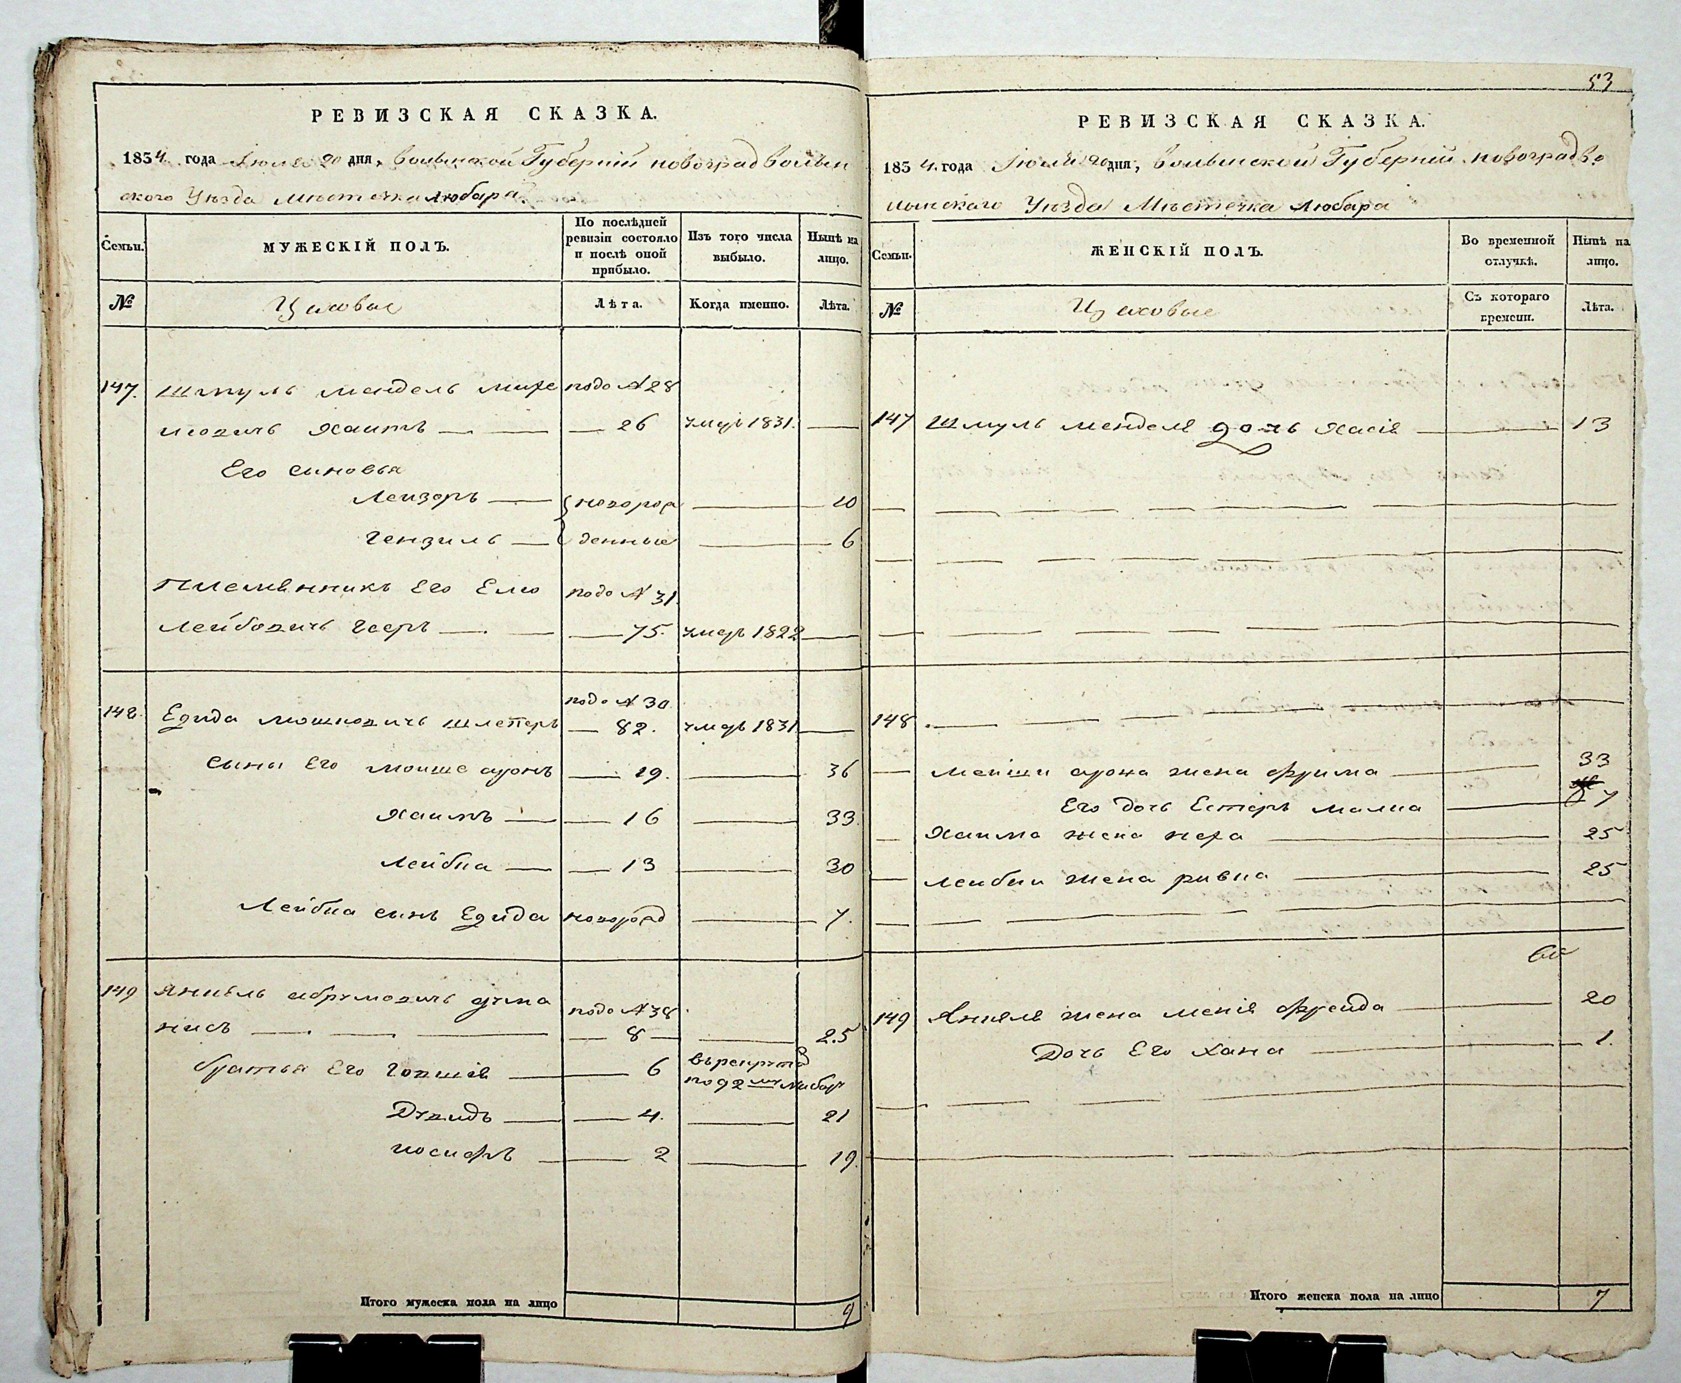 РЕВИЗСКАЯ СКАЗКА.
1854 года Июля 20 дня, Волынской Губерніи новоградволын
ского Уѣзда Мѣстечка Любара
Семьи.
МУЖЕСКІЙ ПОЛЪ.
По послѣдней ревизіи состояло и послѣ оной прибыло.
Изъ того числа выбыло.
Нынѣ на лицо.
№
Цеховые
Лѣта.
Когда именно.
Лѣта.
147. Шмуль мендель подо №28
Хаимъ 26 умеръ 1831.
Его сыновья
Лейзеръ новорож 10
Гензиль денные 6
Племянникъ Его Елю подо №31
Лейбовичь 75. умеръ 1822
148. подо №30
Едида мошковичь 82. умеръ 1831
сыны Его моише аронъ 19. 36
Хаимъ 16 33.
Лейбиа 13 30
Лейбиа сынъ Едида новорожд 7.
149 Янкель абрумовичь
подо №38
8 25
братья Его 6 въ рекруты
по 92 набор
Дувидъ 4. 21
иосифъ 2 19.
Итого мужеска пола на лицо 9
53
РЕВИЗСКАЯ СКАЗКА.
1854. года Июля 20 дня, Волынской Губерніи новоградво
лынскаго Уѣзда Мѣстечка Любара
Семьи.
ЖЕНСКІЙ ПОЛЪ.
Во временной отлучкѣ.
Нынѣ на лицо.
№
Цеховые
Съ котораго времени.
Лѣта.
147 Шмуль менделя дочь Хасія 13
148.
Меиши арона жена фрима 33
Его дочь Естеръ малка 7
Хаима жена неха 25
Лейбы жена ривка 25
149 Янкеля жена менія фрейда 20
Дочь Его Хана 1.
Итого женска пола на лицо 7